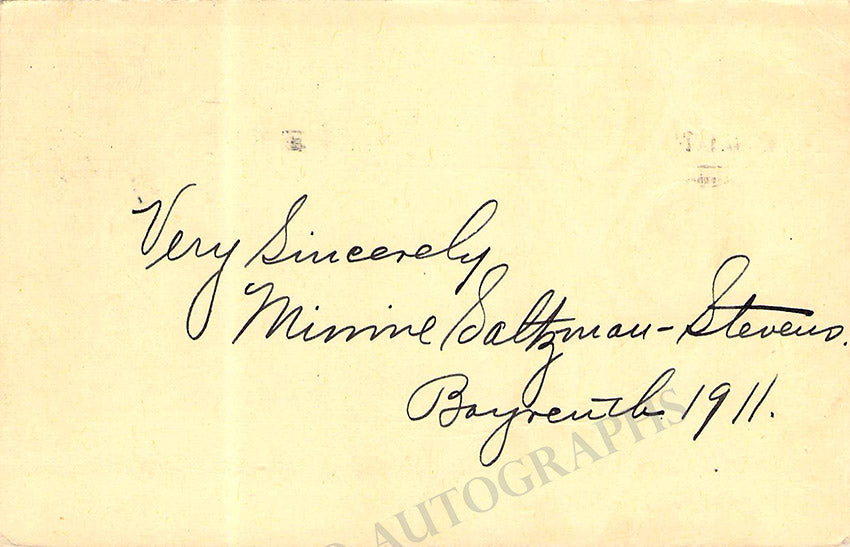 Very Sincerely
Minnie Saltzman-Stevens.
Bayreuth 1911.
AUTOGRAPHS